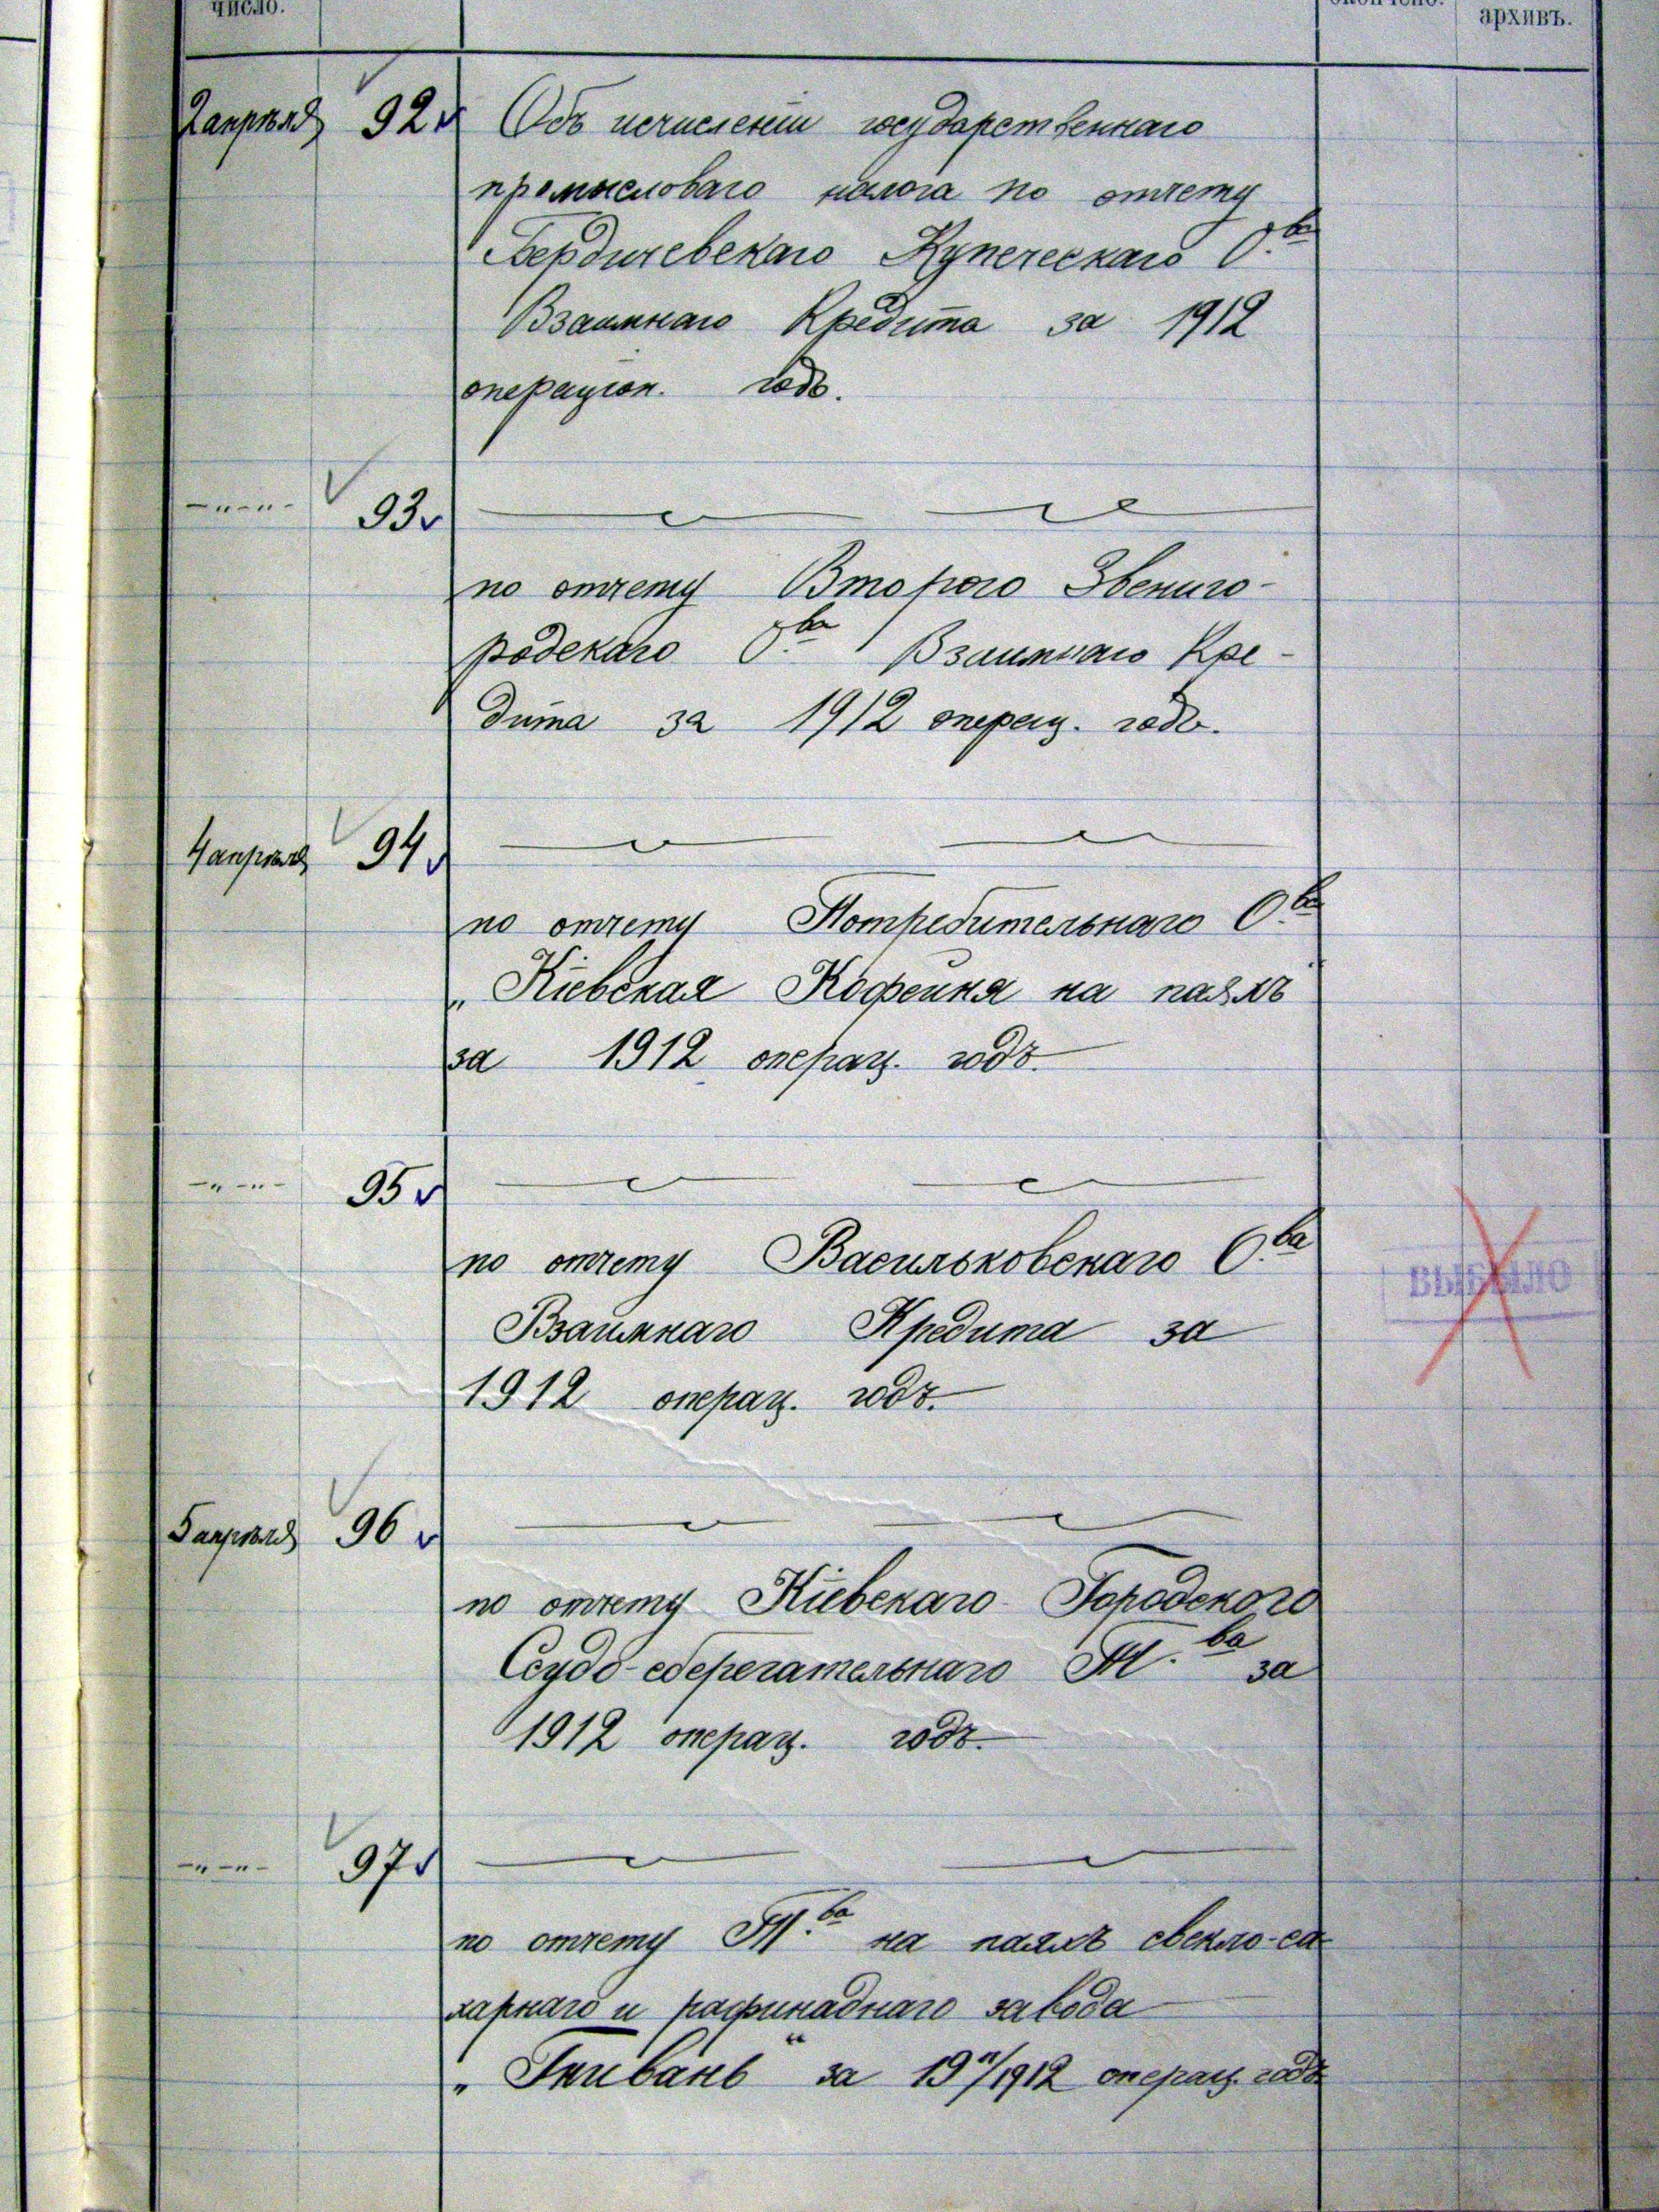 число.
архивъ.
2 апрѣля 92 Объ исчисленіи государственнаго
промысловаго налога по отчету
Бердичевскаго Купеческаго О.ва
Взаимнаго Кредита за 1912
операціон. годъ.
—"—"— 93
по отчету Второго Звениго-
родскаго О.ва Взаимнаго Кре-
дита за 1912 операц. годъ.
4 апрѣля 94
по отчету Потребительнаго О.ва
„Кіевская Кофейня на паяхъ"
за 1912 операц. годъ.
—"—"— 95
по отчету Васильковскаго О.ва
ВЫБЫЛО
Взаимнаго Кредита за
1912 операц. годъ.
5 апрѣля 96
по отчету Кіевскаго Городского
Ссудо-сберегательнаго Т.ва за
1912 операц. годъ.
—"—"— 97
по отчету Т.ва на паяхъ свекло-са
харнаго и рафинаднаго завода
„Гнивань" за 1911/1912 операц. годъ